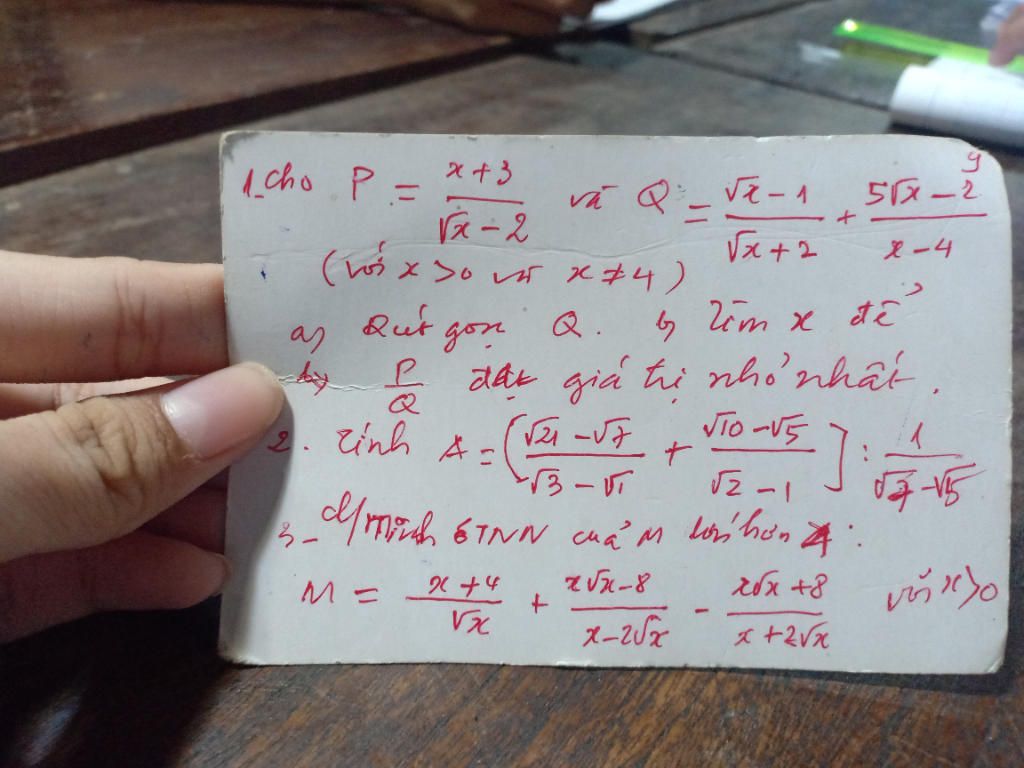 9
1. Cho P = \frac{x+3}{\sqrt{x}-2} và Q = \frac{\sqrt{x}-1}{\sqrt{x}+2} + \frac{5\sqrt{x}-2}{x-4}
(với x>0 và x≠4)
a) Rút gọn Q. b) Tìm x để
\frac{P}{Q} đạt giá trị nhỏ nhất.
2. Tính A = \left(\frac{\sqrt{21}-\sqrt{7}}{\sqrt{3}-\sqrt{1}} + \frac{\sqrt{10}-\sqrt{5}}{\sqrt{2}-1}\right] : \frac{1}{\sqrt{7}-\sqrt{5}}
3_ C/minh GTNN của M lớn hơn 4 :
M = \frac{x+4}{\sqrt{x}} + \frac{x\sqrt{x}-8}{x-2\sqrt{x}} - \frac{x\sqrt{x}+8}{x+2\sqrt{x}} với x>0